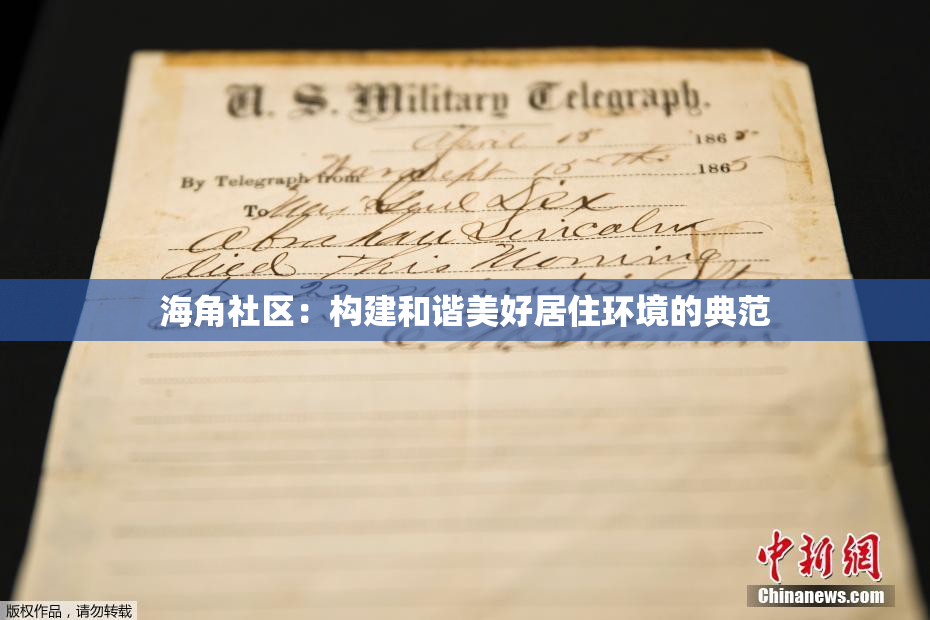 U. S. Military Telegraph.
April 15 1865
By Telegraph from War Dept 15th 1865
To Maj Genl Dix
Abraham Lincoln
died This Morning
at 22 minutes after
海角社区：构建和谐美好居住环境的典范
E. M. Stanton
中新网
Chinanews.com
版权作品，请勿转载